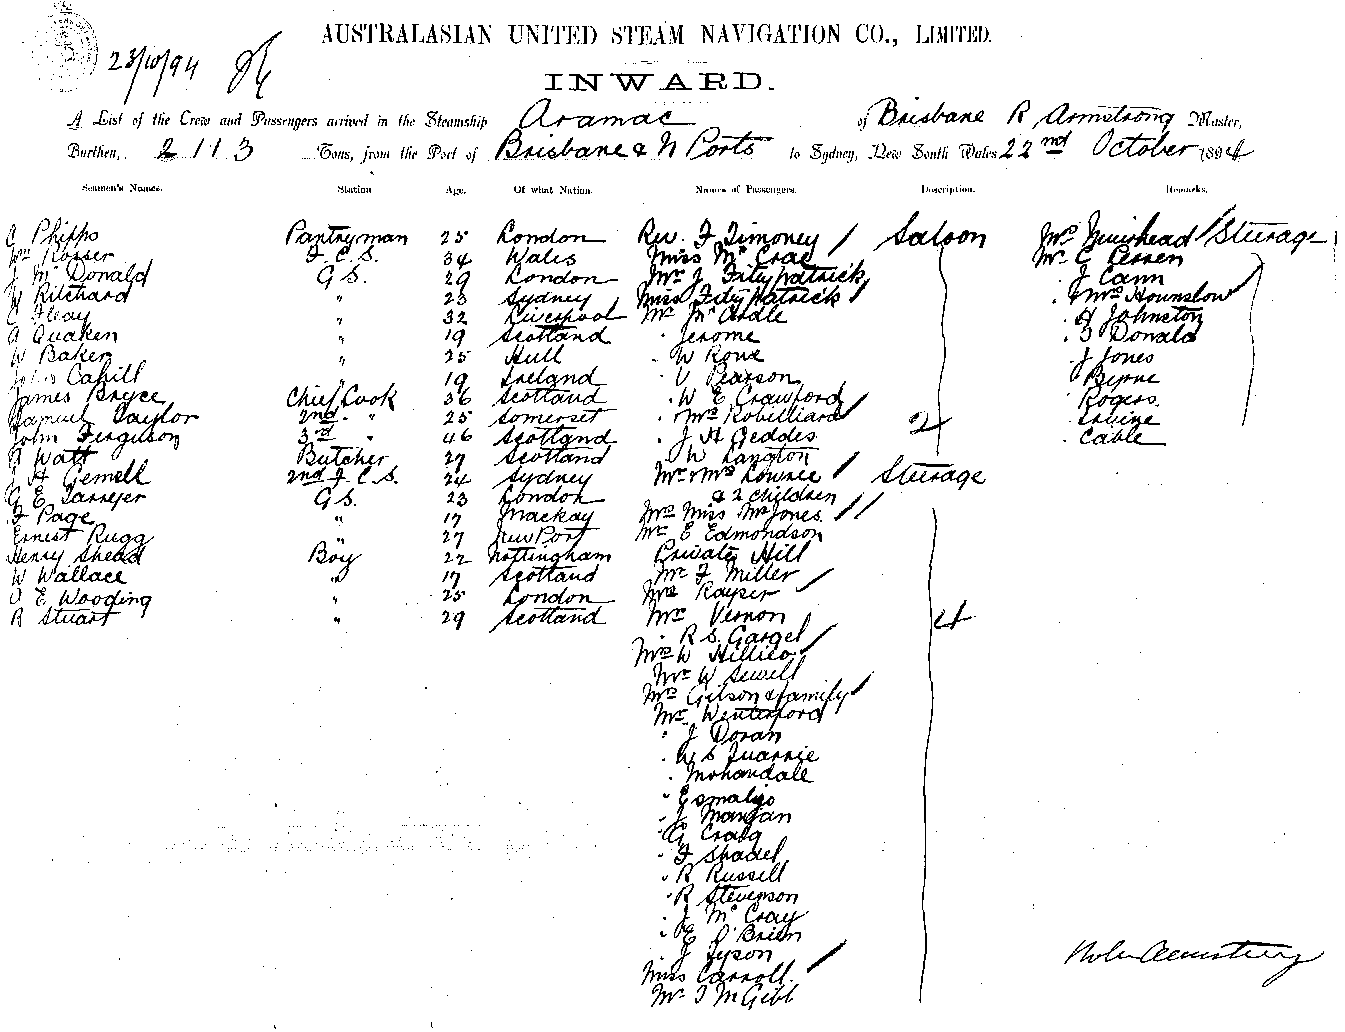 23/10/94
AUSTRALASIAN UNITED STEAM NAVIGATION CO., LIMITED.
INWARD.
A List of the Crew and Passengers arrived in the Steamship Aramac of Brisbane R Armstrong Master,
Burthen, 2113 Tons, from the Port of Brisbane & N Ports to Sydney, New South Wales 22nd October 1894
Seamen's Names. Station Age. Of what Nation. Names of Passengers. Description. Remarks.
Phipps Pantryman 25 London Rev. F Timoney / Saloon Mrs Muirhead / Steerage
Wm Rosser F.C.S. 34 Wales Miss McCrae Mr C Perren
J McDonald G.S. 29 London Mr J Fitzpatrick J Cann
W Ritchard " 23 Sydney Miss Fitzpatrick / Mrs Hounslow /
" 32 Liverpool Mr McArdle Johnston
Quaken " 19 Scotland Jerome Donald
W Baker " 25 Hull W Rowe J Jones
John Cahill " 19 Ireland Pearson Byrne
James Bryce Chief Cook 36 Scotland W E Crawford Rogers
Samuel Taylor 2nd " 25 Somerset Mrs Robilliard / 2 Irvine
John Ferguson 3rd " 46 Scotland J H Geddes Cable
Watt Butcher 27 Scotland W Langton
J H Gemell 2nd F.C.S. 24 Sydney Mr & Mrs Lownie / Steerage
G E G.S. 23 London & 2 children
F Page " 17 Mackay Mrs Miss Mr Jones //
Ernest Rugg " 27 New Port Mr E Edmondson
Henry Shead Boy 22 Nottingham Private Hill
W Wallace " 17 Scotland Mr F Miller
E Wooding " 25 London Mrs Kayser /
R Stuart " 29 Scotland Mr Vernon 4
" R S. Gargel
Mrs W /
Mr W Sewell
Mrs Gilson & family /
Mr Wenterford
" J Doran
" W S Quarrie
" Mohandale
"
" J
" G Craig
" F Shadel
" R Russell
" R Stevenson
" J McCray
" E O'Brien
" J Tyson
Miss Carroll /
Mr McGibb